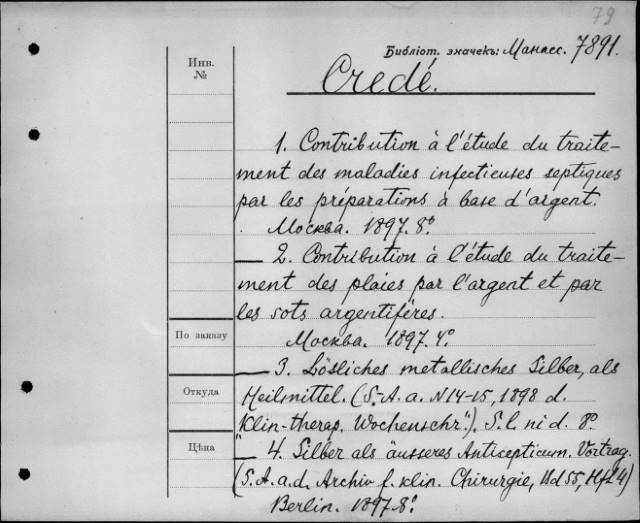 79
Библіот. значекъ: Манасс. 7891.
Инв.
№
Credé.
1. Contribution à l'étude du traite-
ment des maladies infectieuses septiques
par les préparations à base d'argent.
Москва. 1897. 8º
2. Contribution à l'étude du traite-
ment des plaies par l'argent et par
les sots argentifères.
По заказу
Москва. 1897. 4º
3. Lösliches metallisches Silber, als
Откуда
Heilmittel. (S.-A. a. N 14-15, 1898 d.
Klin.-therap. Wochenschr."). S. l. ni d. 8º
Цѣна
4. Silber als äusseres Antisepticum. Vortrag.
(S. A. a. d. Archiv f. klin. Chirurgie, Bd 55, Hft 4)
Berlin. 1897. 8º